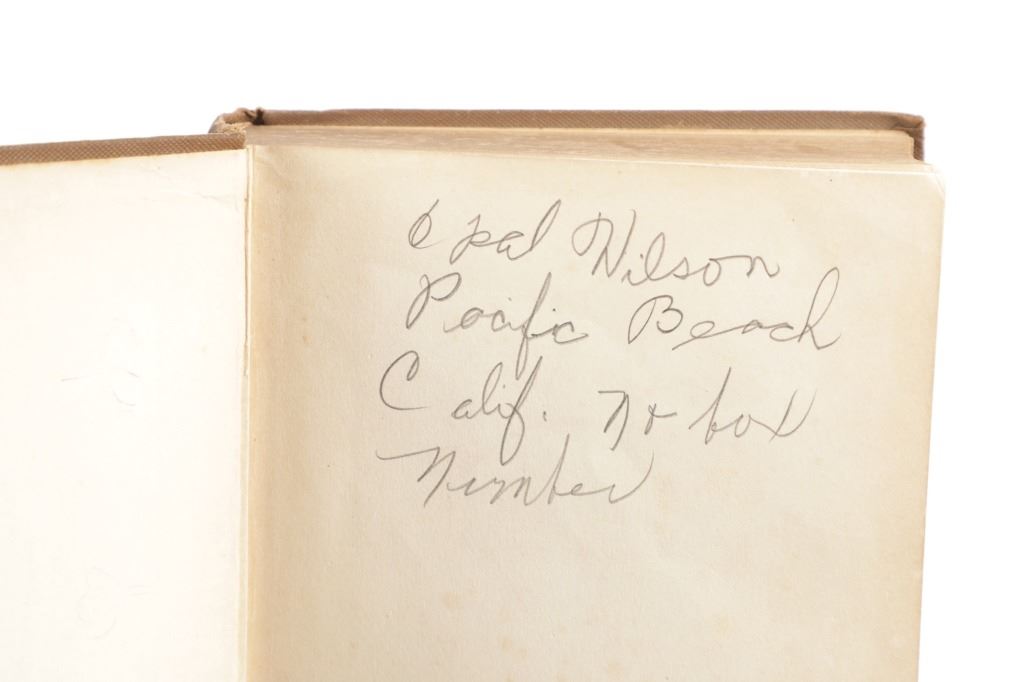 Opal Wilson
Pacific Beach
Calif. No box
Number